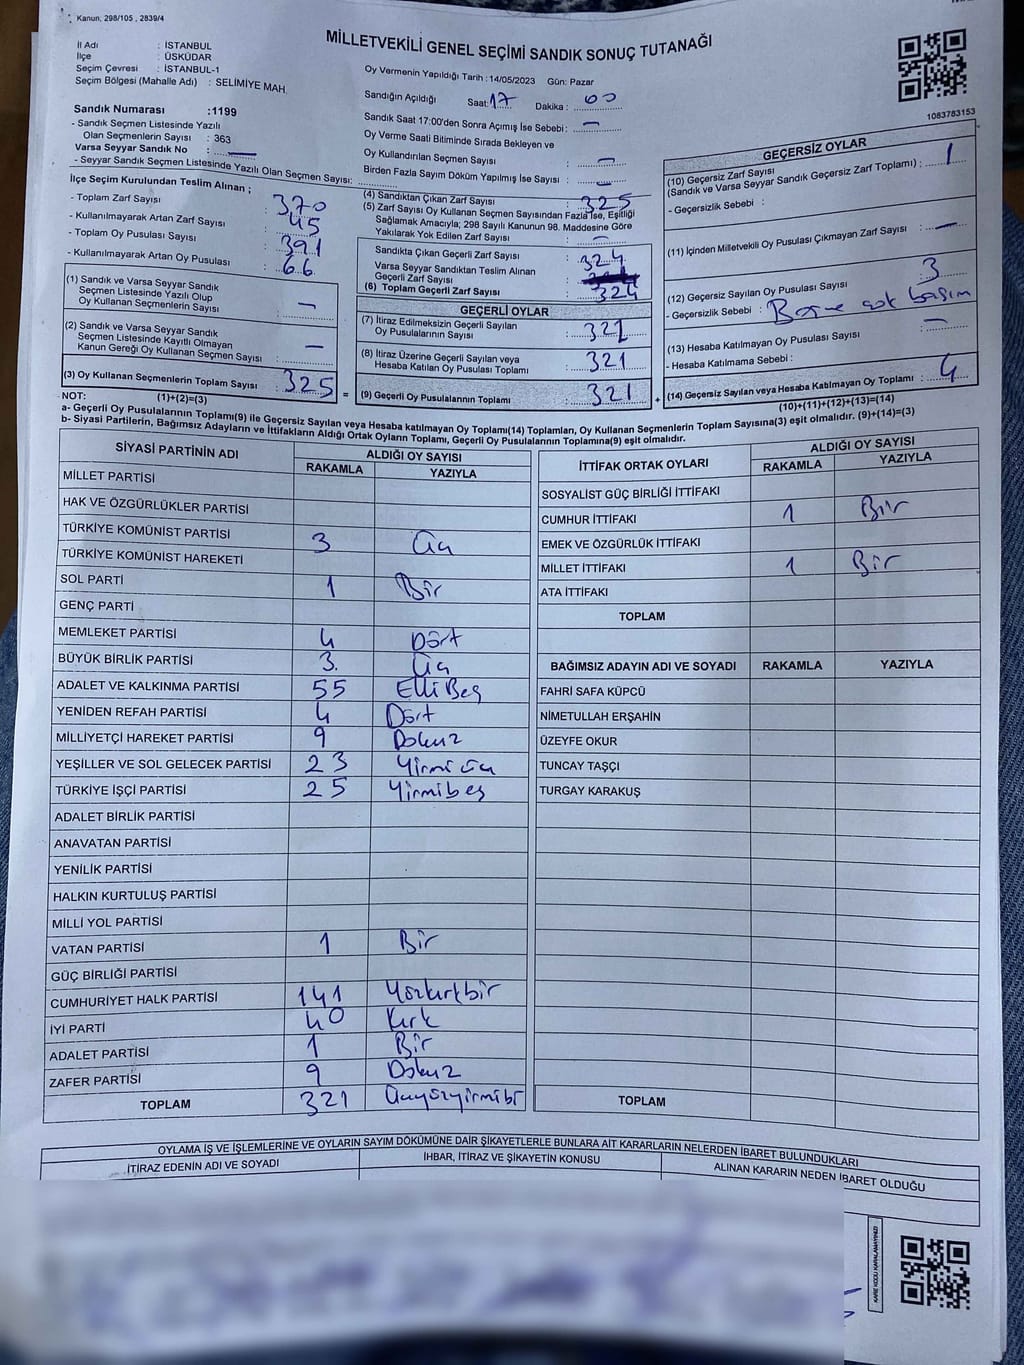 Kanun, 298/105 , 2839/4
MİLLETVEKİLİ GENEL SEÇİMİ SANDIK SONUÇ TUTANAĞI
İl Adı : İSTANBUL
İlçe : ÜSKÜDAR
Seçim Çevresi : İSTANBUL-1
Seçim Bölgesi (Mahalle Adı) : SELİMİYE MAH.
Sandık Numarası :1199
- Sandık Seçmen Listesinde Yazılı
Olan Seçmenlerin Sayısı : 363
Varsa Seyyar Sandık No —
- Seyyar Sandık Seçmen Listesinde Yazılı Olan Seçmen Sayısı:
Oy Vermenin Yapıldığı Tarih :14/05/2023 Gün: Pazar
Sandığın Açıldığı Saat: 17 Dakika : 00
Sandık Saat 17:00'den Sonra Açımış İse Sebebi: —
Oy Verme Saati Bitiminde Sırada Bekleyen ve
Oy Kullandırılan Seçmen Sayısı : —
Birden Fazla Sayım Döküm Yapılmış İse Sayısı : —
1083783153
İlçe Seçim Kurulundan Teslim Alınan ;
- Toplam Zarf Sayısı : 370
- Kullanılmayarak Artan Zarf Sayısı : 45
- Toplam Oy Pusulası Sayısı : 391
- Kullanılmayarak Artan Oy Pusulası : 66
(1) Sandık ve Varsa Seyyar Sandık
Seçmen Listesinde Yazılı Olup
Oy Kullanan Seçmenlerin Sayısı : —
(2) Sandık ve Varsa Seyyar Sandık
Seçmen Listesinde Kayıtlı Olmayan
Kanun Gereği Oy Kullanan Seçmen Sayısı : —
(3) Oy Kullanan Seçmenlerin Toplam Sayısı : 325 =
(4) Sandıktan Çıkan Zarf Sayısı : 325
(5) Zarf Sayısı Oy Kullanan Seçmen Sayısından Fazla İse, Eşitliği
Sağlamak Amacıyla; 298 Sayılı Kanunun 98. Maddesine Göre
Yakılarak Yok Edilen Zarf Sayısı : —
Sandıkta Çıkan Geçerli Zarf Sayısı : 324
Varsa Seyyar Sandıktan Teslim Alınan
Geçerli Zarf Sayısı :
(6) Toplam Geçerli Zarf Sayısı : 324
GEÇERLİ OYLAR
(7) İtiraz Edilmeksizin Geçerli Sayılan
Oy Pusulalarının Sayısı : 321
(8) İtiraz Üzerine Geçerli Sayılan veya
Hesaba Katılan Oy Pusulası Toplamı : 321
(9) Geçerli Oy Pusulalarının Toplamı : 321 +
GEÇERSİZ OYLAR
(10) Geçersiz Zarf Sayısı
(Sandık ve Varsa Seyyar Sandık Geçersiz Zarf Toplamı) : 1
- Geçersizlik Sebebi :
(11) İçinden Milletvekili Oy Pusulası Çıkmayan Zarf Sayısı : —
(12) Geçersiz Sayılan Oy Pusulası Sayısı : 3
- Geçersizlik Sebebi : basım
(13) Hesaba Katılmayan Oy Pusulası Sayısı : —
- Hesaba Katılmama Sebebi :
(14) Geçersiz Sayılan veya Hesaba Katılmayan Oy Toplamı : 4
NOT: (1)+(2)=(3)
(10)+(11)+(12)+(13)=(14)
a- Geçerli Oy Pusulalarının Toplamı(9) ile Geçersiz Sayılan veya Hesaba katılmayan Oy Toplamı(14) Toplamları, Oy Kullanan Seçmenlerin Toplam Sayısına(3) eşit olmalıdır. (9)+(14)=(3)
b- Siyasi Partilerin, Bağımsız Adayların ve İttifakların Aldığı Ortak Oyların Toplamı, Geçerli Oy Pusulalarının Toplamına(9) eşit olmalıdır.
SİYASİ PARTİNİN ADI ALDIĞI OY SAYISI
RAKAMLA YAZIYLA
MİLLET PARTİSİ
HAK VE ÖZGÜRLÜKLER PARTİSİ
TÜRKİYE KOMÜNİST PARTİSİ 3 Üç
TÜRKİYE KOMÜNİST HAREKETİ
SOL PARTİ 1 Bir
GENÇ PARTİ
MEMLEKET PARTİSİ 4 Dört
BÜYÜK BİRLİK PARTİSİ 3. Üç
ADALET VE KALKINMA PARTİSİ 55 Elli Beş
YENİDEN REFAH PARTİSİ 4 Dört
MİLLİYETÇİ HAREKET PARTİSİ 9 Dokuz
YEŞİLLER VE SOL GELECEK PARTİSİ 23 Yirmi üç
TÜRKİYE İŞÇİ PARTİSİ 25 Yirmibeş
ADALET BİRLİK PARTİSİ
ANAVATAN PARTİSİ
YENİLİK PARTİSİ
HALKIN KURTULUŞ PARTİSİ
MİLLİ YOL PARTİSİ
VATAN PARTİSİ 1 Bir
GÜÇ BİRLİĞİ PARTİSİ
CUMHURİYET HALK PARTİSİ 141 Yüzkırkbir
İYİ PARTİ 40 Kırk
ADALET PARTİSİ 1 Bir
ZAFER PARTİSİ 9 Dokuz
TOPLAM 321 Üçyüzyirmibr
İTTİFAK ORTAK OYLARI ALDIĞI OY SAYISI
RAKAMLA YAZIYLA
SOSYALİST GÜÇ BİRLİĞİ İTTİFAKI
CUMHUR İTTİFAKI 1 Bir
EMEK VE ÖZGÜRLÜK İTTİFAKI
MİLLET İTTİFAKI 1 Bir
ATA İTTİFAKI
TOPLAM
BAĞIMSIZ ADAYIN ADI VE SOYADI RAKAMLA YAZIYLA
FAHRİ SAFA KÜPCÜ
NİMETULLAH ERŞAHİN
ÜZEYFE OKUR
TUNCAY TAŞÇI
TURGAY KARAKUŞ
TOPLAM
OYLAMA İŞ VE İŞLEMLERİNE VE OYLARIN SAYIM DÖKÜMÜNE DAİR ŞİKAYETLERLE BUNLARA AİT KARARLARIN NELERDEN İBARET BULUNDUKLARI
İTİRAZ EDENİN ADI VE SOYADI İHBAR, İTİRAZ VE ŞİKAYETİN KONUSU ALINAN KARARIN NEDEN İBARET OLDUĞU
KARE KODU KARALAMAYINIZ!